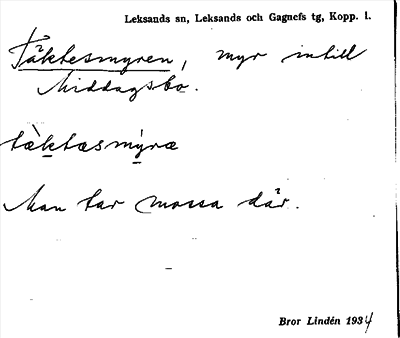 Leksands sn, Leksands och Gagnefs tg, Kopp. l.
Täktesmyren, myr intill
Middagsbo.
tæ̀ktæsmýræ
Man tar mossa där.
Bror Lindén 1934